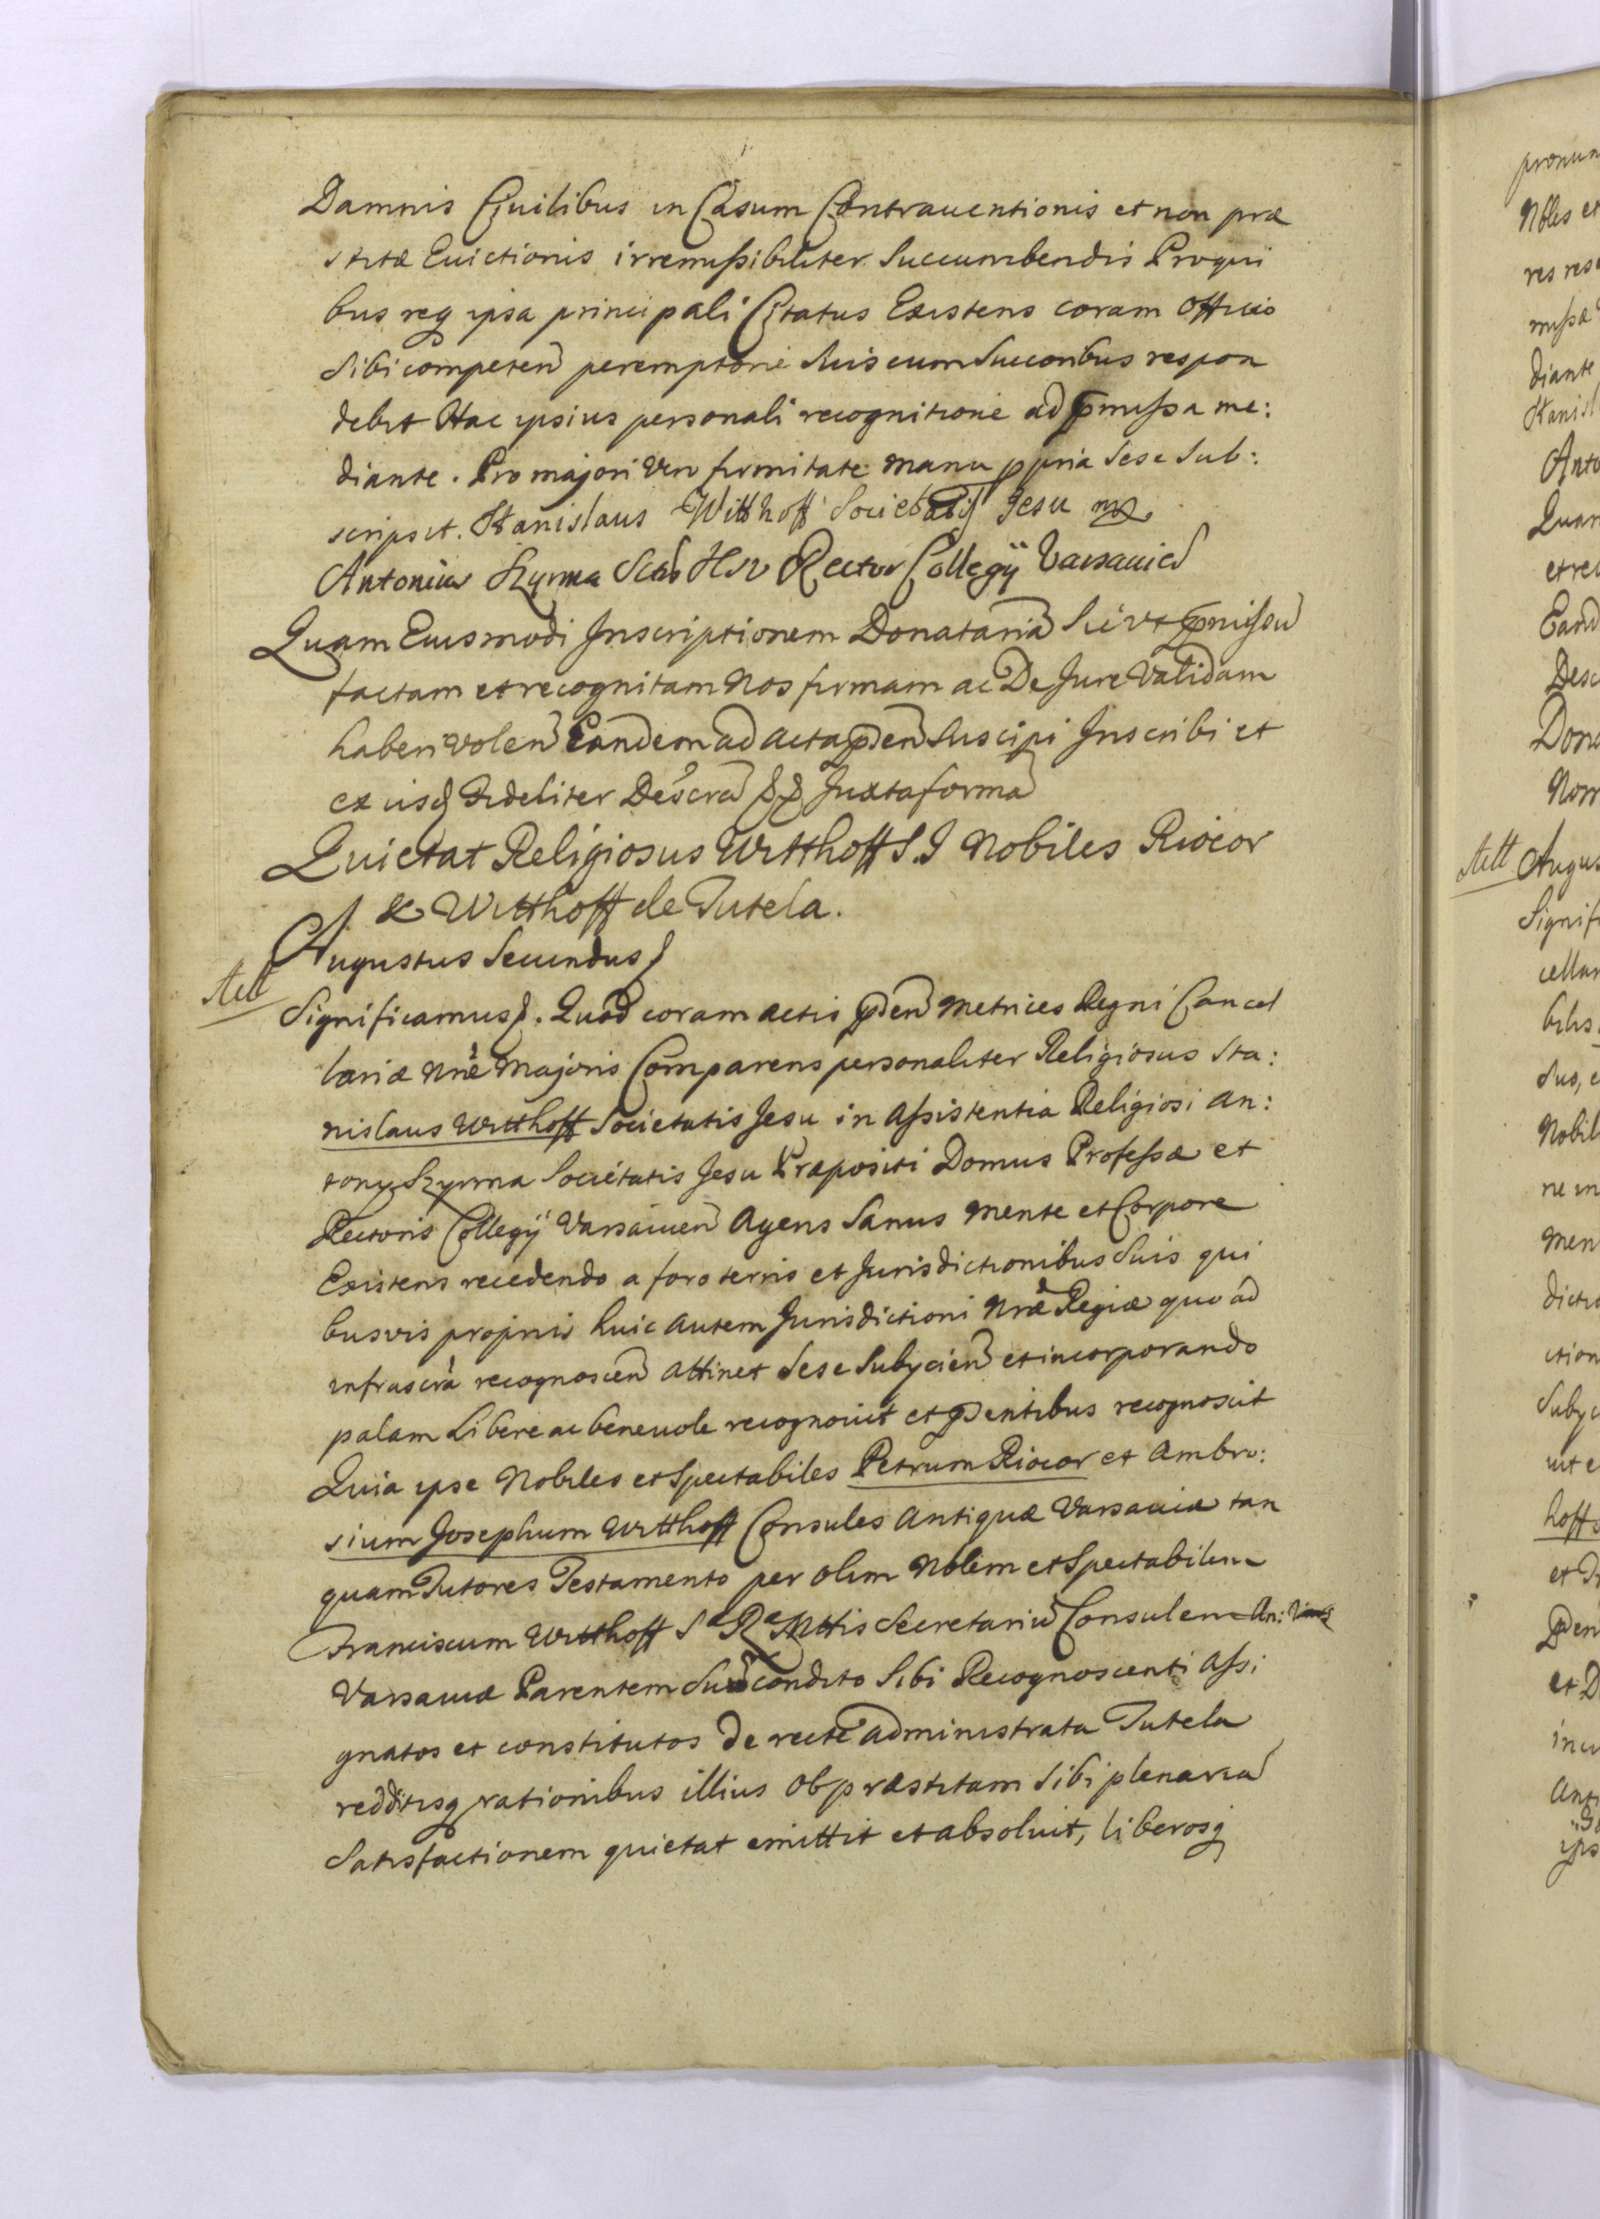 Damnis Civilibus in Casum Contrauentionis et non præ
stitæ Euictionis irremissibiliter Succumbendis Pro qui
bus req ipsa principali Citatus Existens coram Officio
Sibi competen peremptorie Suis cum Succoribus respon
debit Hac ipsius personali recognitione ad pmissa me:
diante. Pro majori vero firmitate manu ppria Sese Sub:
scripsit. Stanislaus Witthoff Societatis Jesu mp
Antonius Szyrma Rector Collegÿ Varsauien
Quam Eiusmodi Inscriptionem Donatariã Sic vt pmissũ
factam et recognitam Nos firmam ac De Jure Validam
haberi volen Eandem ad acta pden Suscipi Inscribi et
ex iisq fideliter Juxta formã
Quietat Religiosus Witthoff S.J Nobiles Riocor
& Witthoff de Tutela.
Augustus Secundus
Significamus. Quod coram actis pden Metrices Regni Cancel
lariæ Nrẽ Majoris Comparens personaliter Religiosus Sta:
nislaus Witthoff Societatis Jesu in Assistentia Religiosi An:
tony Szyrma Societatis Jesu Præpositi Domus Professæ et
Rectoris Collegÿ Varsauien Agens Sanus Mente et Corpore
Existens recedendo a foro terris et Jurisdictionibus Suis qui
busvis proprijs huic autem Jurisdictioni Nræ Regiæ quo ad
infrascra recognoscen attinet Sese Subyciẽn et incorporando
palam Libere ac beneuole recognouit et pdentibus recognoscit
Quia ipse Nobiles et Spectabiles Petrum Riocor et Ambro:
sium Josephum Witthoff Consules Antiquæ Varsauiæ tan
quam Tutores Testamento per olim Noblem et Spectabilem
Franciscum Witthoff Sæ Ræ Mttis Secretariũ Consulem An:
Varsauiæ Parentem Suũ condito Sibi Recognoscenti Assi
gnatos et constitutos De recte administrata Tutela
redditisq rationibus illius ob præstitam Sibi plenariã
Satisfactionem quietat emittit et absoluit, liberosq